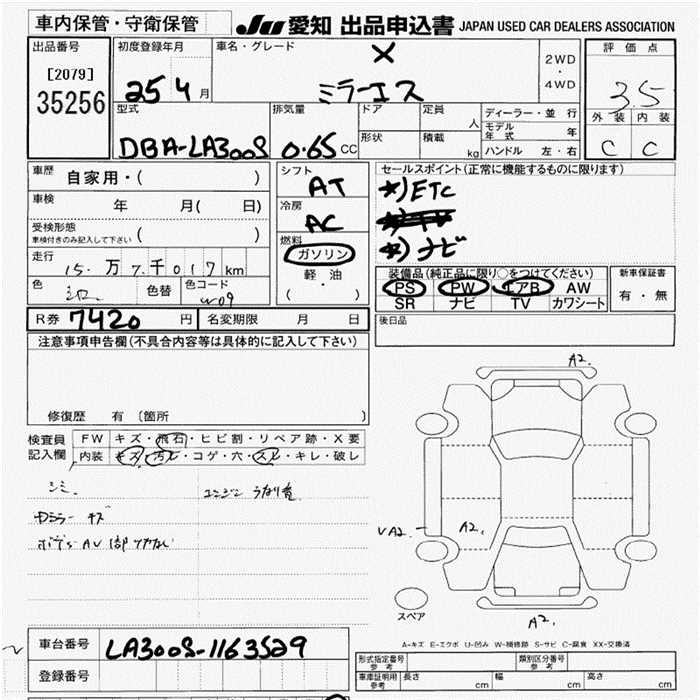 車内保管・守衛保管 JU 愛知 出品申込書 JAPAN USED CAR DEALERS ASSOCIATION
出品番号 初度登録年月 車名・グレード 2WD・4WD 評価点
[2079] X
35256 25 4 月 ミラーイース 3.5
外装 内装
型式 排気量 ドア 定員 人 ディーラー・並行
モデル年式 年
形状 積載 kg ハンドル 左・右
DBA-LA300S 0.65 CC C C
車歴 自家用・( ) シフト AT セールスポイント(正常に機能するものに限ります)
車検 年 月( 日) 冷房 AC *)ETC
受検形態 車検付きのみ記入して下さい ( ) 燃料 ガソリン *)ナビ
走行 15 万 7 千 017 km 軽・油 装備品(純正品に限り○をつけてください) 新車保証書
色 色替 色コード W09 ( ・ ) PS PW エアB AW 有・無
SR ナビ TV カワシート
R券 7420 円 名変期限 月 日 後日品
注意事項申告欄(不具合内容等は具体的に記入して下さい)
A2.
修復歴 有 〔箇所 〕
検査員記入欄 FW キズ・飛石・ヒビ割・リペア跡・X要
内装 キズ・汚レ・コゲ・穴・スレ・キレ・破レ
シミ エンジン うなり音
キズ
VA2. A2.
スペア
A2.
A-キズ E-エクボ U-凹み W-補修跡 S-サビ C-腐食 XX-交換済
車台番号 LA300S-1163529
型式指定番号 参考 類別区分番号 参考
登録番号 車庫証明用 参考 長さ cm 幅 cm 高さ cm